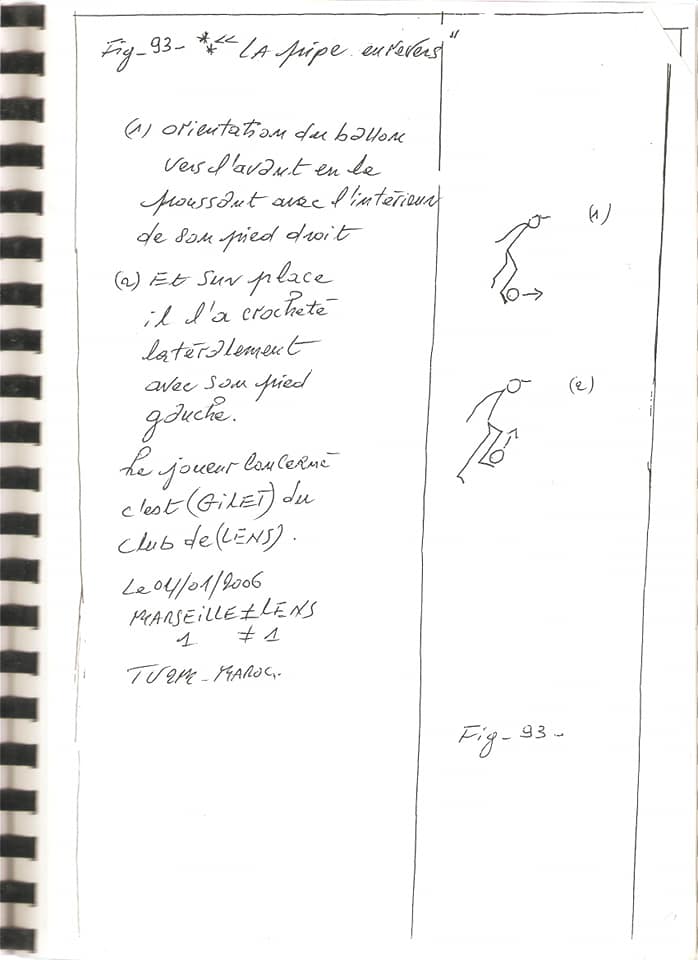 Fig-93- ** « LA pipe enrevers"
(1) orientation du ballon
vers l'avant en le
poussant avec l'intérieur
de son pied droit
(2) Et sur place
il l'a crocheté
latéralement
avec son pied
gauche.
Le joueur concerné
c'est (GILET) du
club de (LENS).
Le 04/01/2006
MARSEILLE ≠ LENS
1 ≠ 1
TV2M-MAROC.
(1)
(2)
Fig-93-